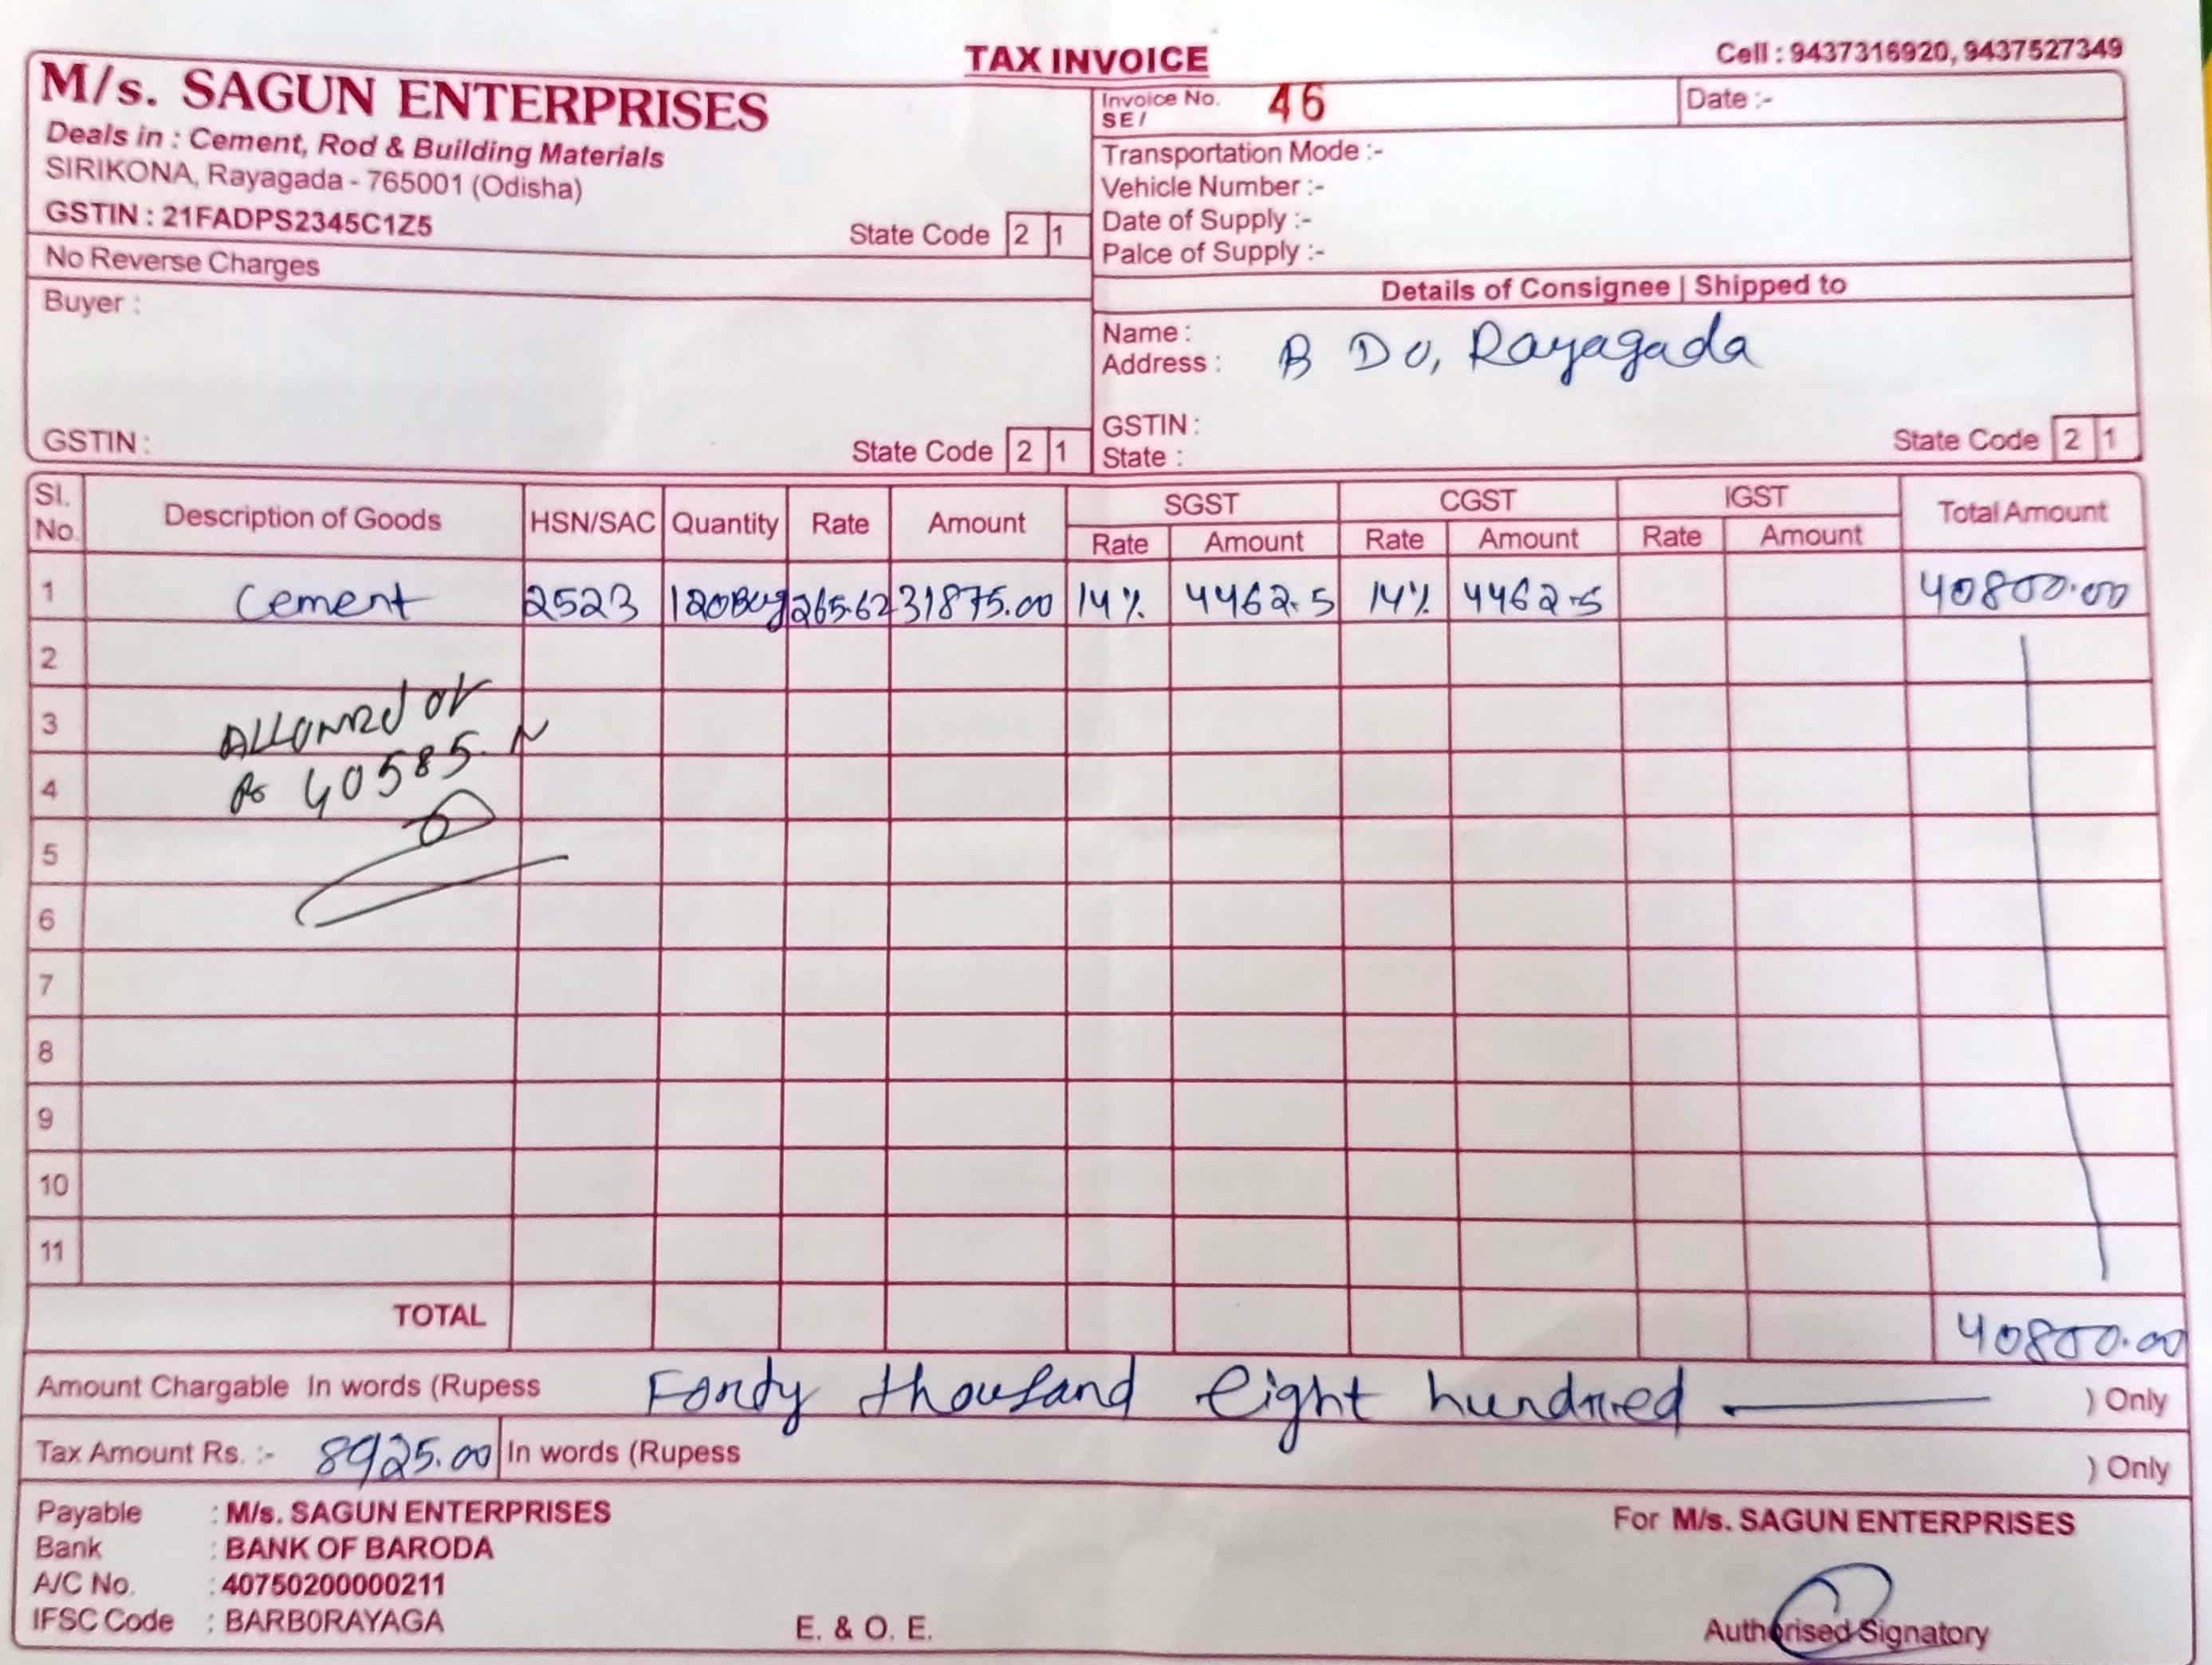 TAX INVOICE
Cell : 9437316920, 9437527349
M/s. SAGUN ENTERPRISES
Deals in : Cement, Rod & Building Materials
SIRIKONA, Rayagada - 765001 (Odisha)
GSTIN : 21FADPS2345C1Z5
State Code 2 1
No Reverse Charges
Buyer :
GSTIN :
State Code 2 1
Invoice No. SE/ 46
Date :-
Transportation Mode :-
Vehicle Number :-
Date of Supply :-
Palce of Supply :-
Details of Consignee | Shipped to
Name :
Address : B DO, Rayagada
GSTIN :
State :
State Code 2 1
Sl. No. Description of Goods HSN/SAC Quantity Rate Amount SGST Rate Amount CGST Rate Amount IGST Rate Amount Total Amount
1 Cement 2523 120Bag 265.62 31875.00 14% 4462.5 14% 4462.5 40800.00
2
3 ALLOWED
4 Rs 40585
5
6
7
8
9
10
11
TOTAL 40800.00
Amount Chargable In words (Rupess Fordy thousand eight hundred ) Only
Tax Amount Rs. :- 8925.00 In words (Rupess ) Only
Payable : M/s. SAGUN ENTERPRISES
Bank : BANK OF BARODA
A/C No. : 40750200000211
IFSC Code : BARB0RAYAGA
E. & O. E.
For M/s. SAGUN ENTERPRISES
Authorised Signatory